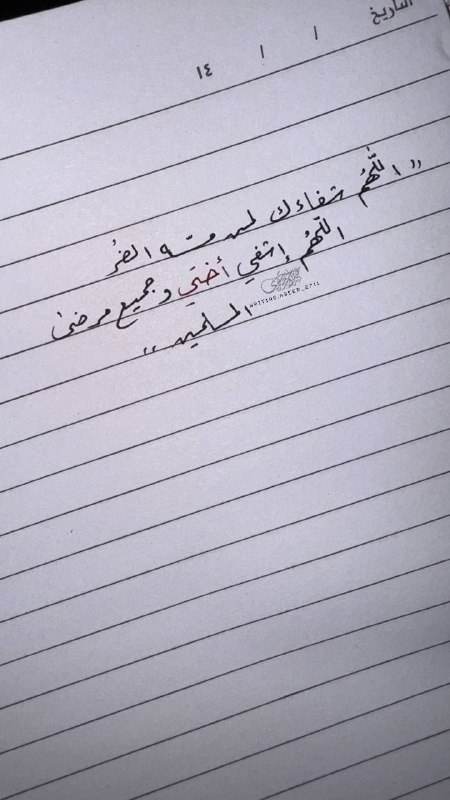 التاريخ / / ١٤
" اللَّهُم شفاءك لمن مسّه الضرُ
اللّهُم إشفي أختي وجميع مرضىٰ
المسلمين "
HAITHAM.ASEER_0711